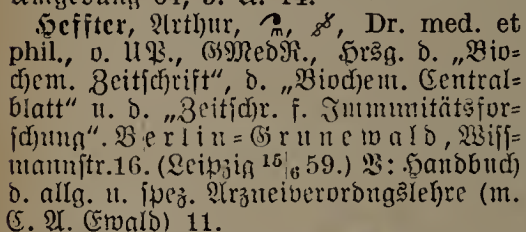 Heffter, Arthur, Dr. med. et
phil., o. UP., GMedR., Hrsg. d. „Bio-
chem. Zeitschrift“, d. „Biochem. Central-
blatt“ u. d. „Zeitschr. f. Immunitätsfor-
schung“. Berlin-Grunewald, Wiss-
mannstr.16. (Leipzig 15/6 59.) V: Handbuch
d. allg. u. spez. Arzneiverordngslehre (m.
C. A. Ewald) 11.